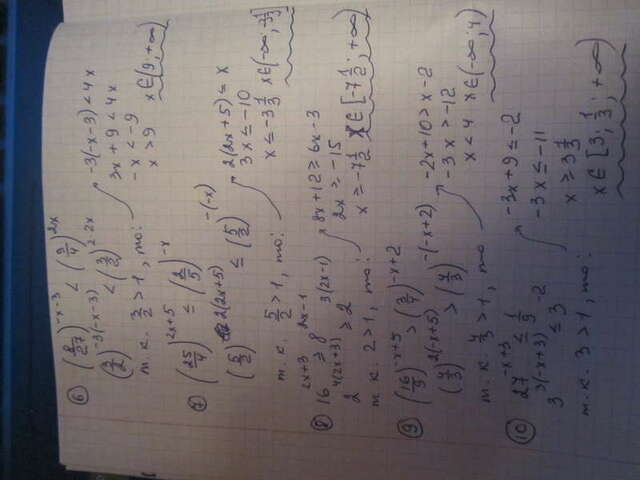 ⑥ (8/27)^(-x-3) < (9/4)^(2x)
(3/2)^(-3(-x-3)) < (3/2)^(2·2x)
т.к. 3/2 > 1, то:
-3(-x-3) < 4x
3x + 9 < 4x
-x < -9
x > 9 x ∈ (9; +∞)
⑦ (25/4)^(2x+5) ≤ (2/5)^(-x)
(5/2)^(2(2x+5)) ≤ (5/2)^(-(-x))
т.к. 5/2 > 1, то:
2(2x+5) = x
3x ≤ -10
x ≤ -3 1/3 x ∈ (-∞; -3 1/3]
⑧ 16^(2x+3) ≥ 8^(2x-1)
2^(4(2x+3)) ≥ 2^(3(2x-1))
т.к. 2 > 1, то:
8x + 12 ≥ 6x - 3
2x ≥ -15
x ≥ -7 1/2 x ∈ [-7 1/2; +∞)
⑨ (16/9)^(-x+5) > (3/4)^(-x+2)
(4/3)^(2(-x+5)) > (4/3)^(-(-x+2))
т.к. 4/3 > 1, то
-2x + 10 > x - 2
-3x > -12
x < 4 x ∈ (-∞; 4)
⑩ 27^(-x+3) ≤ 1/9
3^(3(-x+3)) ≤ 3^(-2)
т.к. 3 > 1, то:
-3x + 9 ≤ -2
-3x ≤ -11
x ≥ 3 1/3
x ∈ [3; 1/3; +∞)